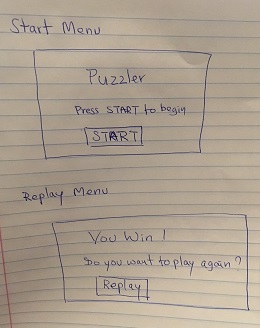 Start Menu
Puzzler
Press START to begin
START
Replay Menu
You Win!
Do you want to play again?
Replay